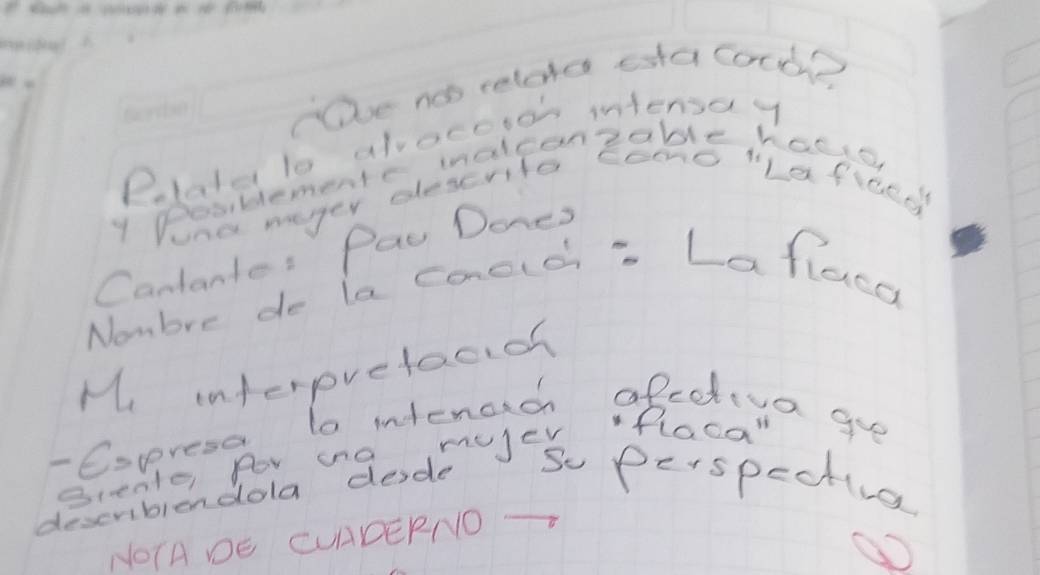 ¿Que nos relata esta canción?
Relata la atracción intensa y
y Posiblemente inalcanzable hacia
una mujer descrita como "La flaca"
Cantante: Pau Dones
Nombre de la Canción: La flaca
Mi interpretación
-Expresa la intención afectiva que
siente, por una mujer "flaca"
describiendola desde su perspectiva
NOTA DE CUADERNO →